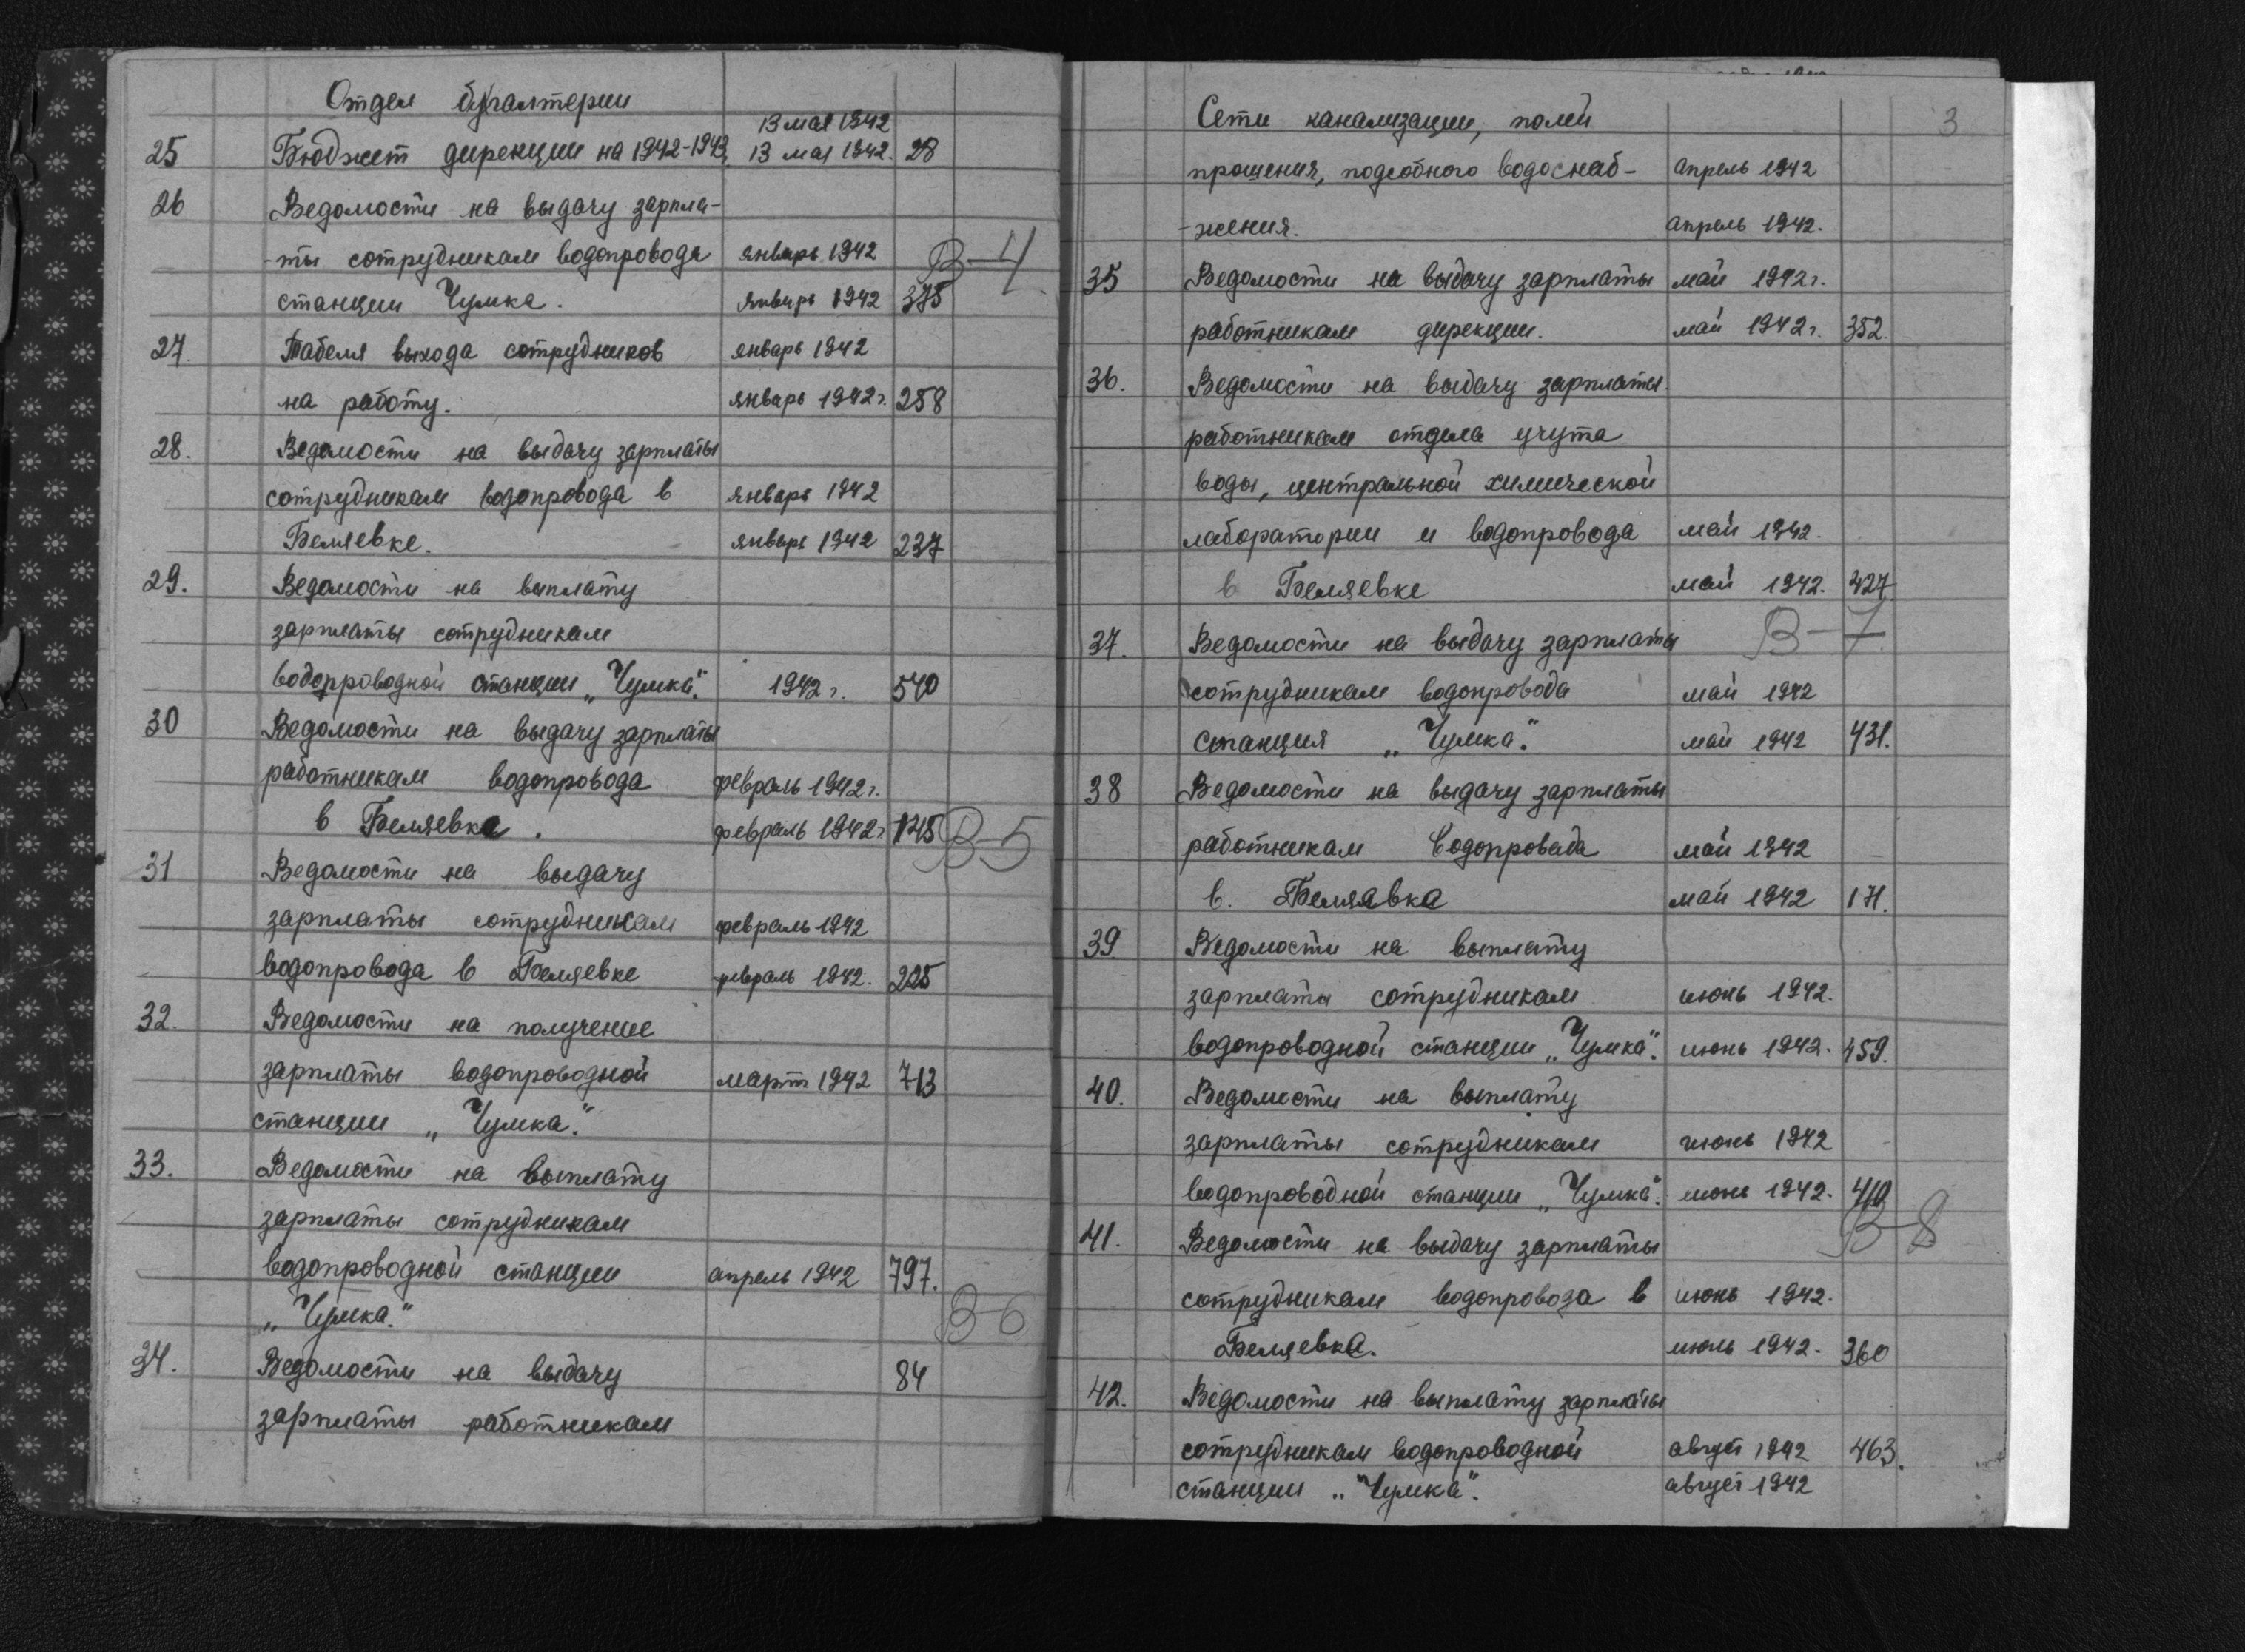 Отдел бугалтерии
13 мая 1942
25 Бюджет дирекции на 1942-1943, 13 мая 1942. 28
26 Ведомости на выдачу зарпла-
-ты сотрудникам водопровода январь 1942 В-4
станции Чумка. январь 1942 375
27. Табеля выхода сотрудников январь 1942
на работу. январь 1942 г. 258
28. Ведомости на выдачу зарплаты
сотрудникам водопровода в январь 1942
Беляевке. январь 1942 237
29. Ведомости на выплату
зарплаты сотрудникам
водопроводной станции „Чумка". 1942 г. 540
30 Ведомости на выдачу зарплаты
работникам водопровода февраль 1942 г.
в Беляевке. февраль 1942 г 145 В-5
31 Ведомости на выдачу
зарплаты сотрудникам февраль 1942
водопровода в Беляевке февраль 1942. 225
32. Ведомости на получение
зарплаты водопроводной март 1942 713
станции „Чумка."
33. Ведомости на выплату
зарплаты сотрудникам
водопроводной станции апрель 1942 797.
„Чумка." В-6
34. Ведомости на выдачу 84
зарплаты работникам
3
Сети канализации, полей
прошения, подсобного водоснаб- апрель 1942
-жения. апрель 1942.
35 Ведомости на выдачу зарплаты май 1942 г.
работникам дирекции. май 1942 г. 352.
36. Ведомости на выдачу зарплаты
работникам отдела учута
воды, центральной химической
лаборатории и водопровода май 1942.
в Беляевке май 1942. 427.
37. Ведомости на выдачу зарплаты В-7
сотрудникам водопровода май 1942
станция „Чумка." май 1942 431.
38 Ведомости на выдачу зарплаты
работникам водопровода май 1942
в. Беляавка май 1942 171.
39 Ведомости на выплату
зарплаты сотрудникам июнь 1942.
водопроводной станции „Чумка". июнь 1942. 459.
40. Ведомости на выплату
зарплаты сотрудникам июнь 1942
водопроводной станции „Чумка". июнь 1942. 410
41. Ведомости на выдачу зарплаты В-8
сотрудникам водопровода в июнь 1942.
Беляевка. июль 1942. 360
42. Ведомости на выплату зарплаты
сотрудникам водопроводной август 1942 463.
станции „Чумка". август 1942